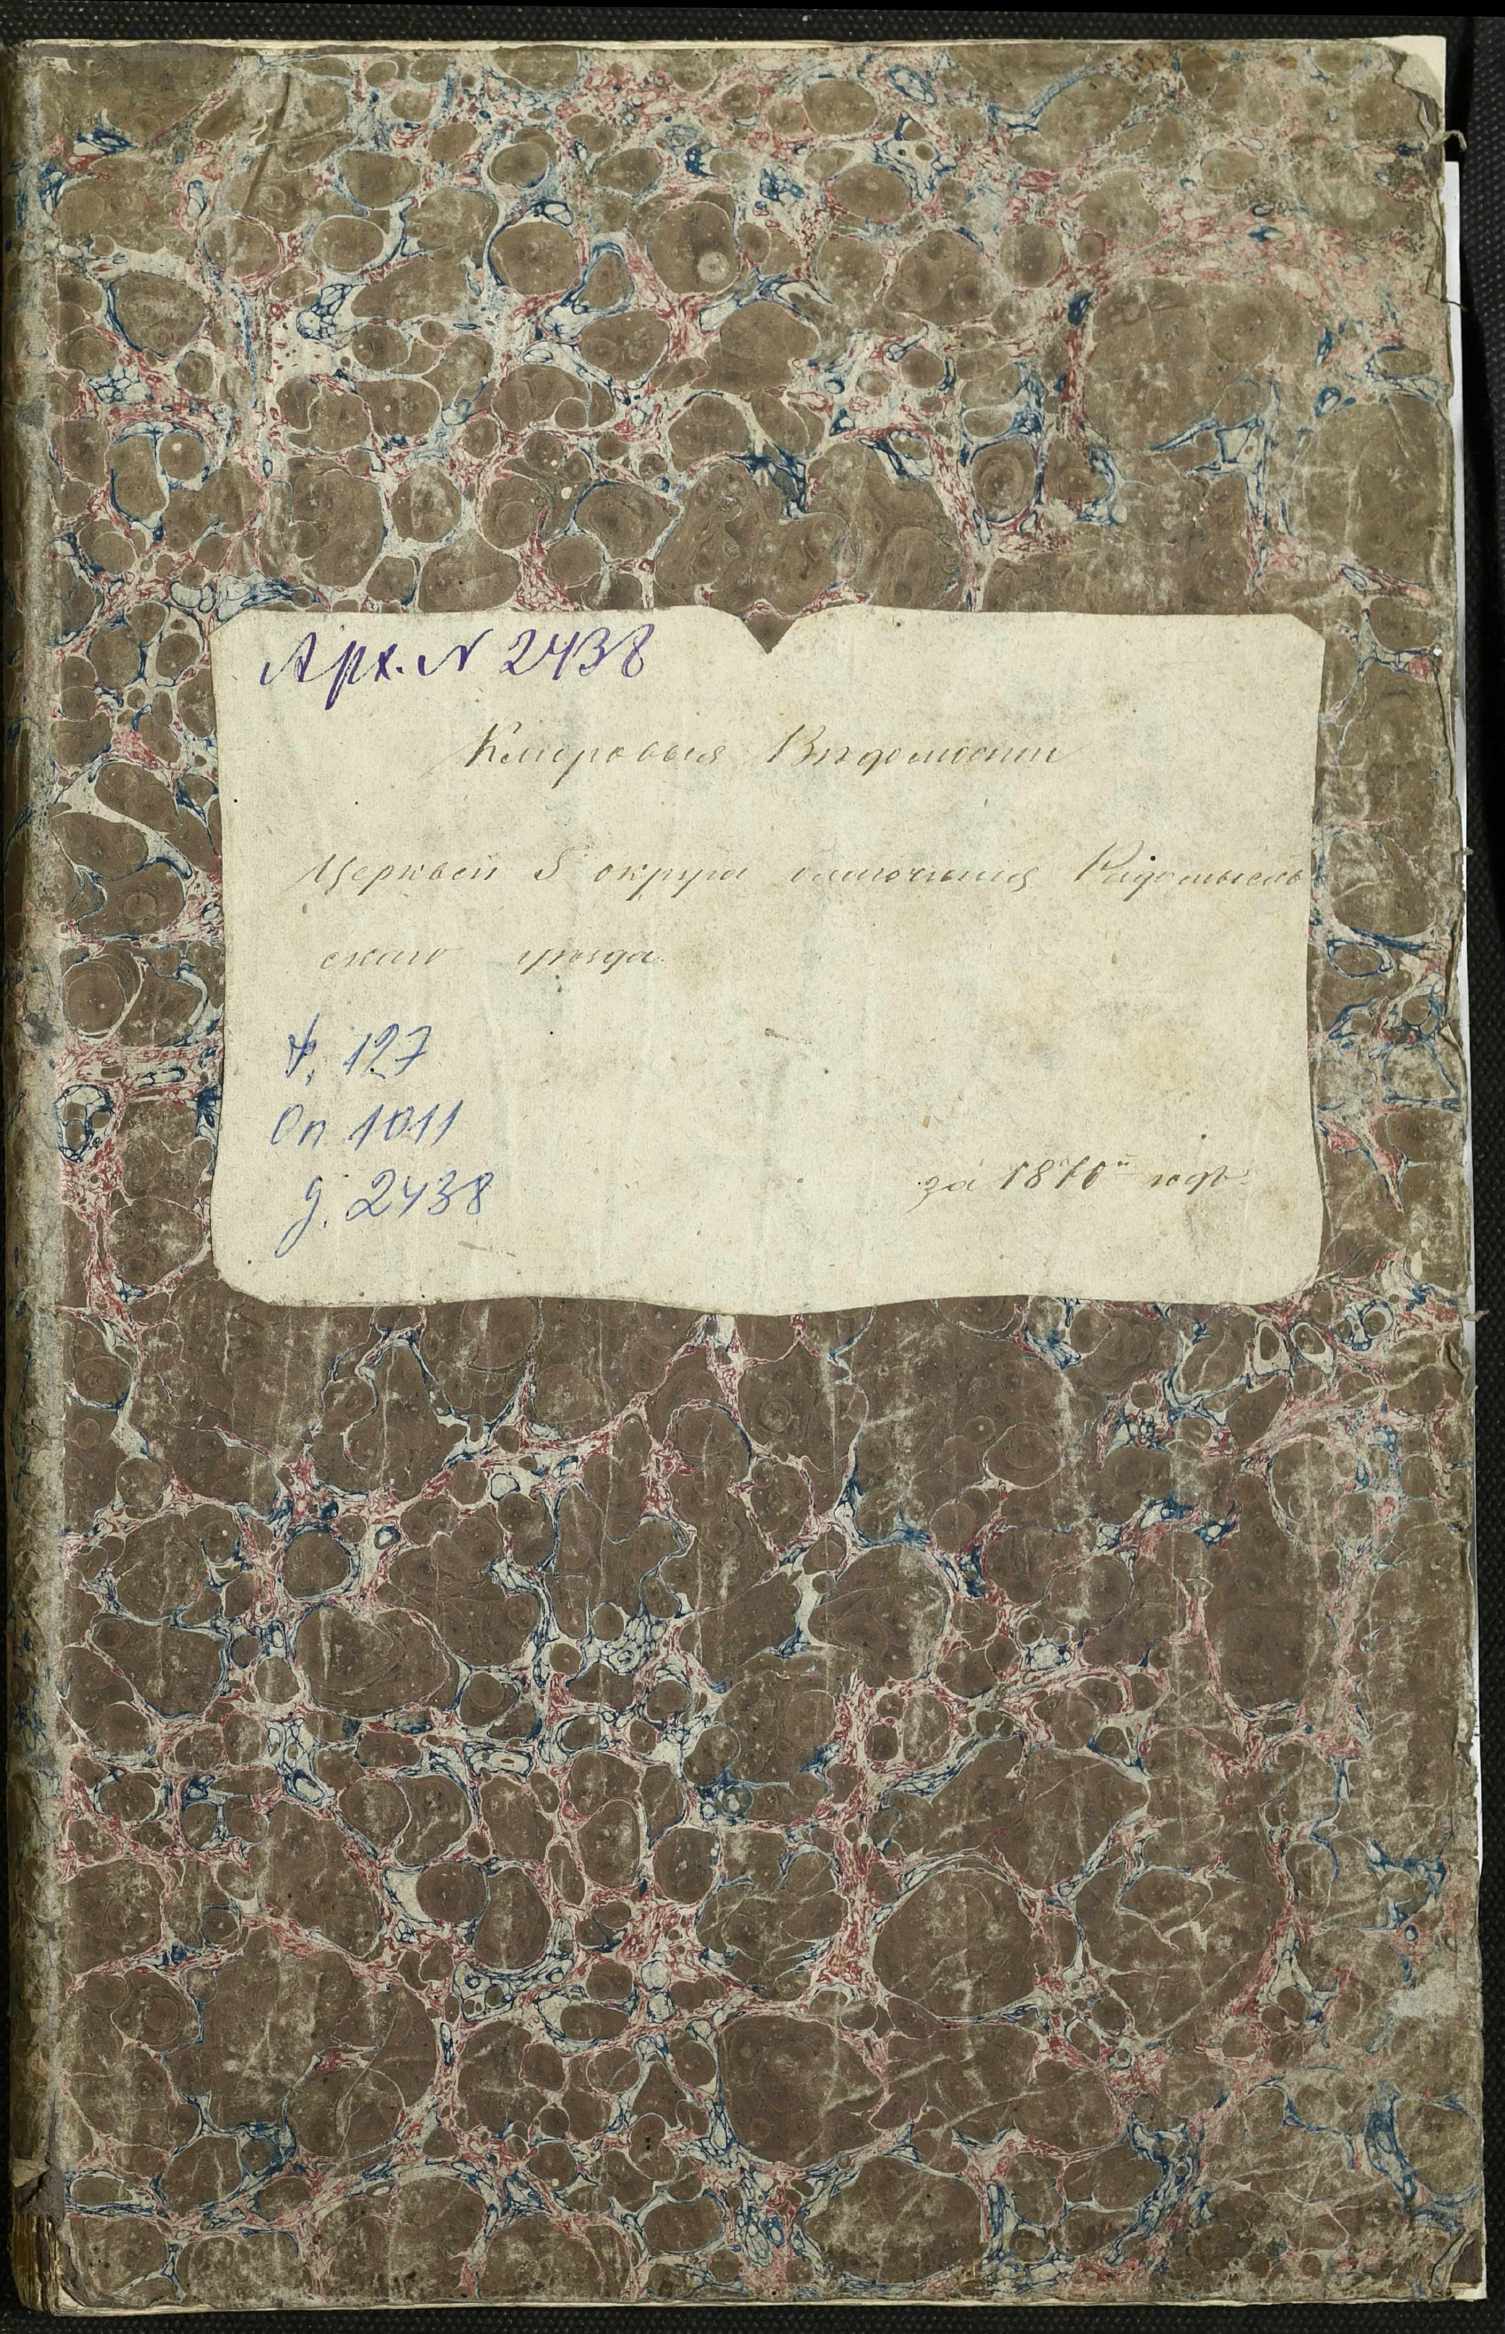 Арх. N 2438
Клировыя Вѣдомости
Церквей 5 округа благочинія Радомысль
скаго уѣзда.
ф. 127
Оп 1011
д. 2438
за 1870й годъ.